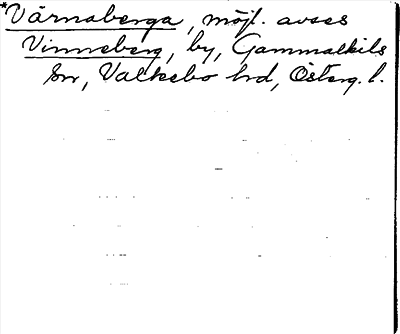 *Värnaberga, möjl. avses
Vinneberg, by, Gammalkils
sn, Valkebo hd, Österg. l.